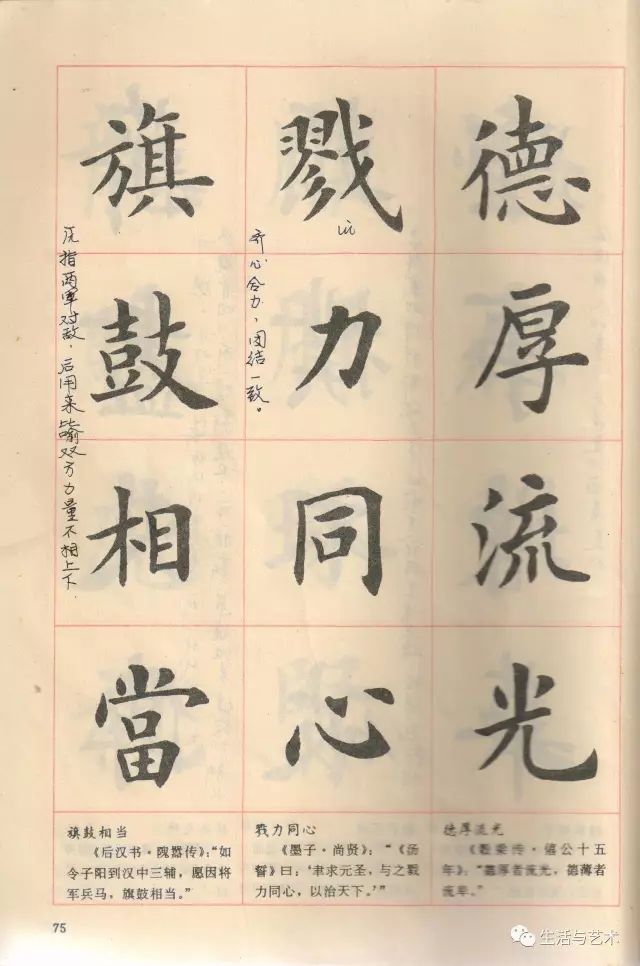 德厚流光
戮力同心
旗鼓相當
lù
齐心合力，团结一致。
指两军对敌，后用来喻双方力量不相上下.
德厚流光
《穀梁传·僖公十五
年》：“德厚者流光，德薄者
流卑。”
戮力同心
《墨子·尚贤》：“《汤
誓》曰：‘聿求元圣，与之戮
力同心，以治天下。’”
旗鼓相当
《后汉书·隗嚣传》：“如
令子阳到汉中三辅，愿因将
军兵马，旗鼓相当。”
75
生活与艺术